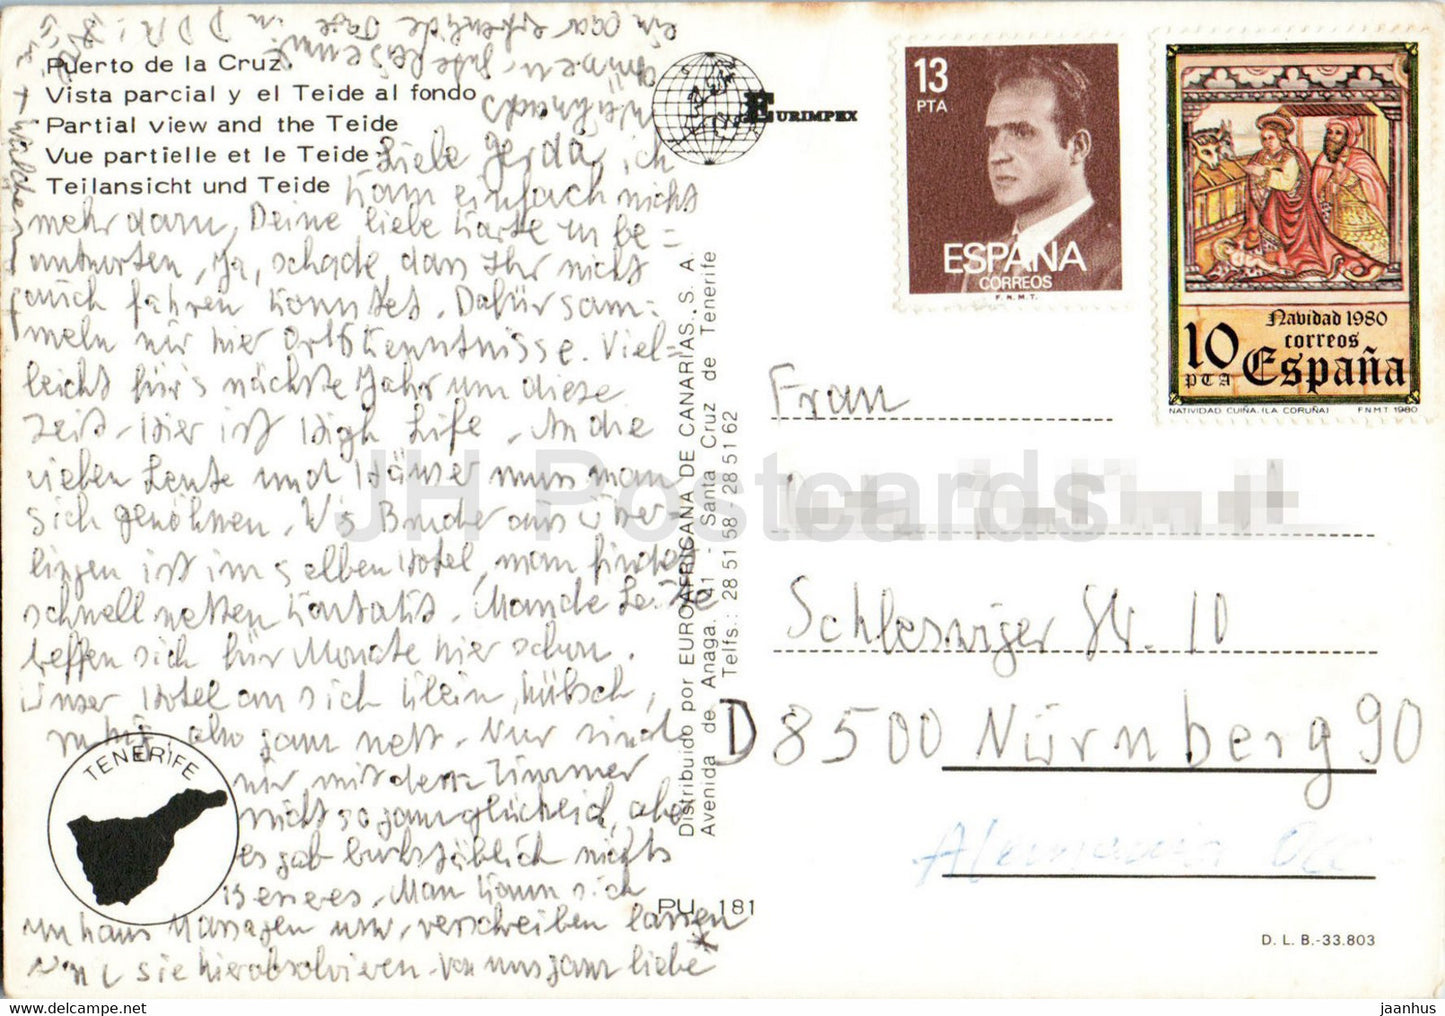 Puerto de la Cruz.
Vista parcial y el Teide al fondo
Partial view and the Teide
Vue partielle et le Teide
Teilansicht und Teide
Liebe Gerda, ich
kam einfach nicht
mehr dazu, Deine liebe Karte zu be=
antworten. Ja, schade, dass Ihr nicht
auch fahren konntet. Dafür sam=
meln wir hier Ortskenntnisse. Viel=
leicht für's nächste Jahr um diese
Zeit. Hier ist High Life. An die
vielen Leute und Häuser muss man
sich gewöhnen. W's Bruder aus Über=
lingen ist im selben Hotel, man findet
schnell netten Kontakt. Manche Leute
treffen sich für Monate hier schon.
Unser Hotel an sich klein, hübsch,
ruhig, also ganz nett. Nur sind
wir mit dem Zimmer
nicht so ganz glücklich, aber
es gab buchstäblich nichts
besseres. Man kann sich
zuhaus Massagen usw. verschreiben lassen
und sie hier absolvieren. Von uns ganz liebe *
EURIMPEX
Distribuido por EUROAFRICANA DE CANARIAS, S. A.
Avenida de Anaga, 41 - Santa Cruz de Tenerife
Telfs.: 28 51 58 - 28 51 62
TENERIFE
PU. 181
13
PTA
ESPAÑA
CORREOS
F.N.M.T.
Navidad 1980
correos
10
PTA
España
NATIVIDAD CUIÑA. (LA CORUÑA) F.N.M.T. 1980
Frau
Schleswiger Str. 10
D 8500 Nürnberg 90
Alemania Occ
D. L. B.-33.803
JH Postcards
jaanhus